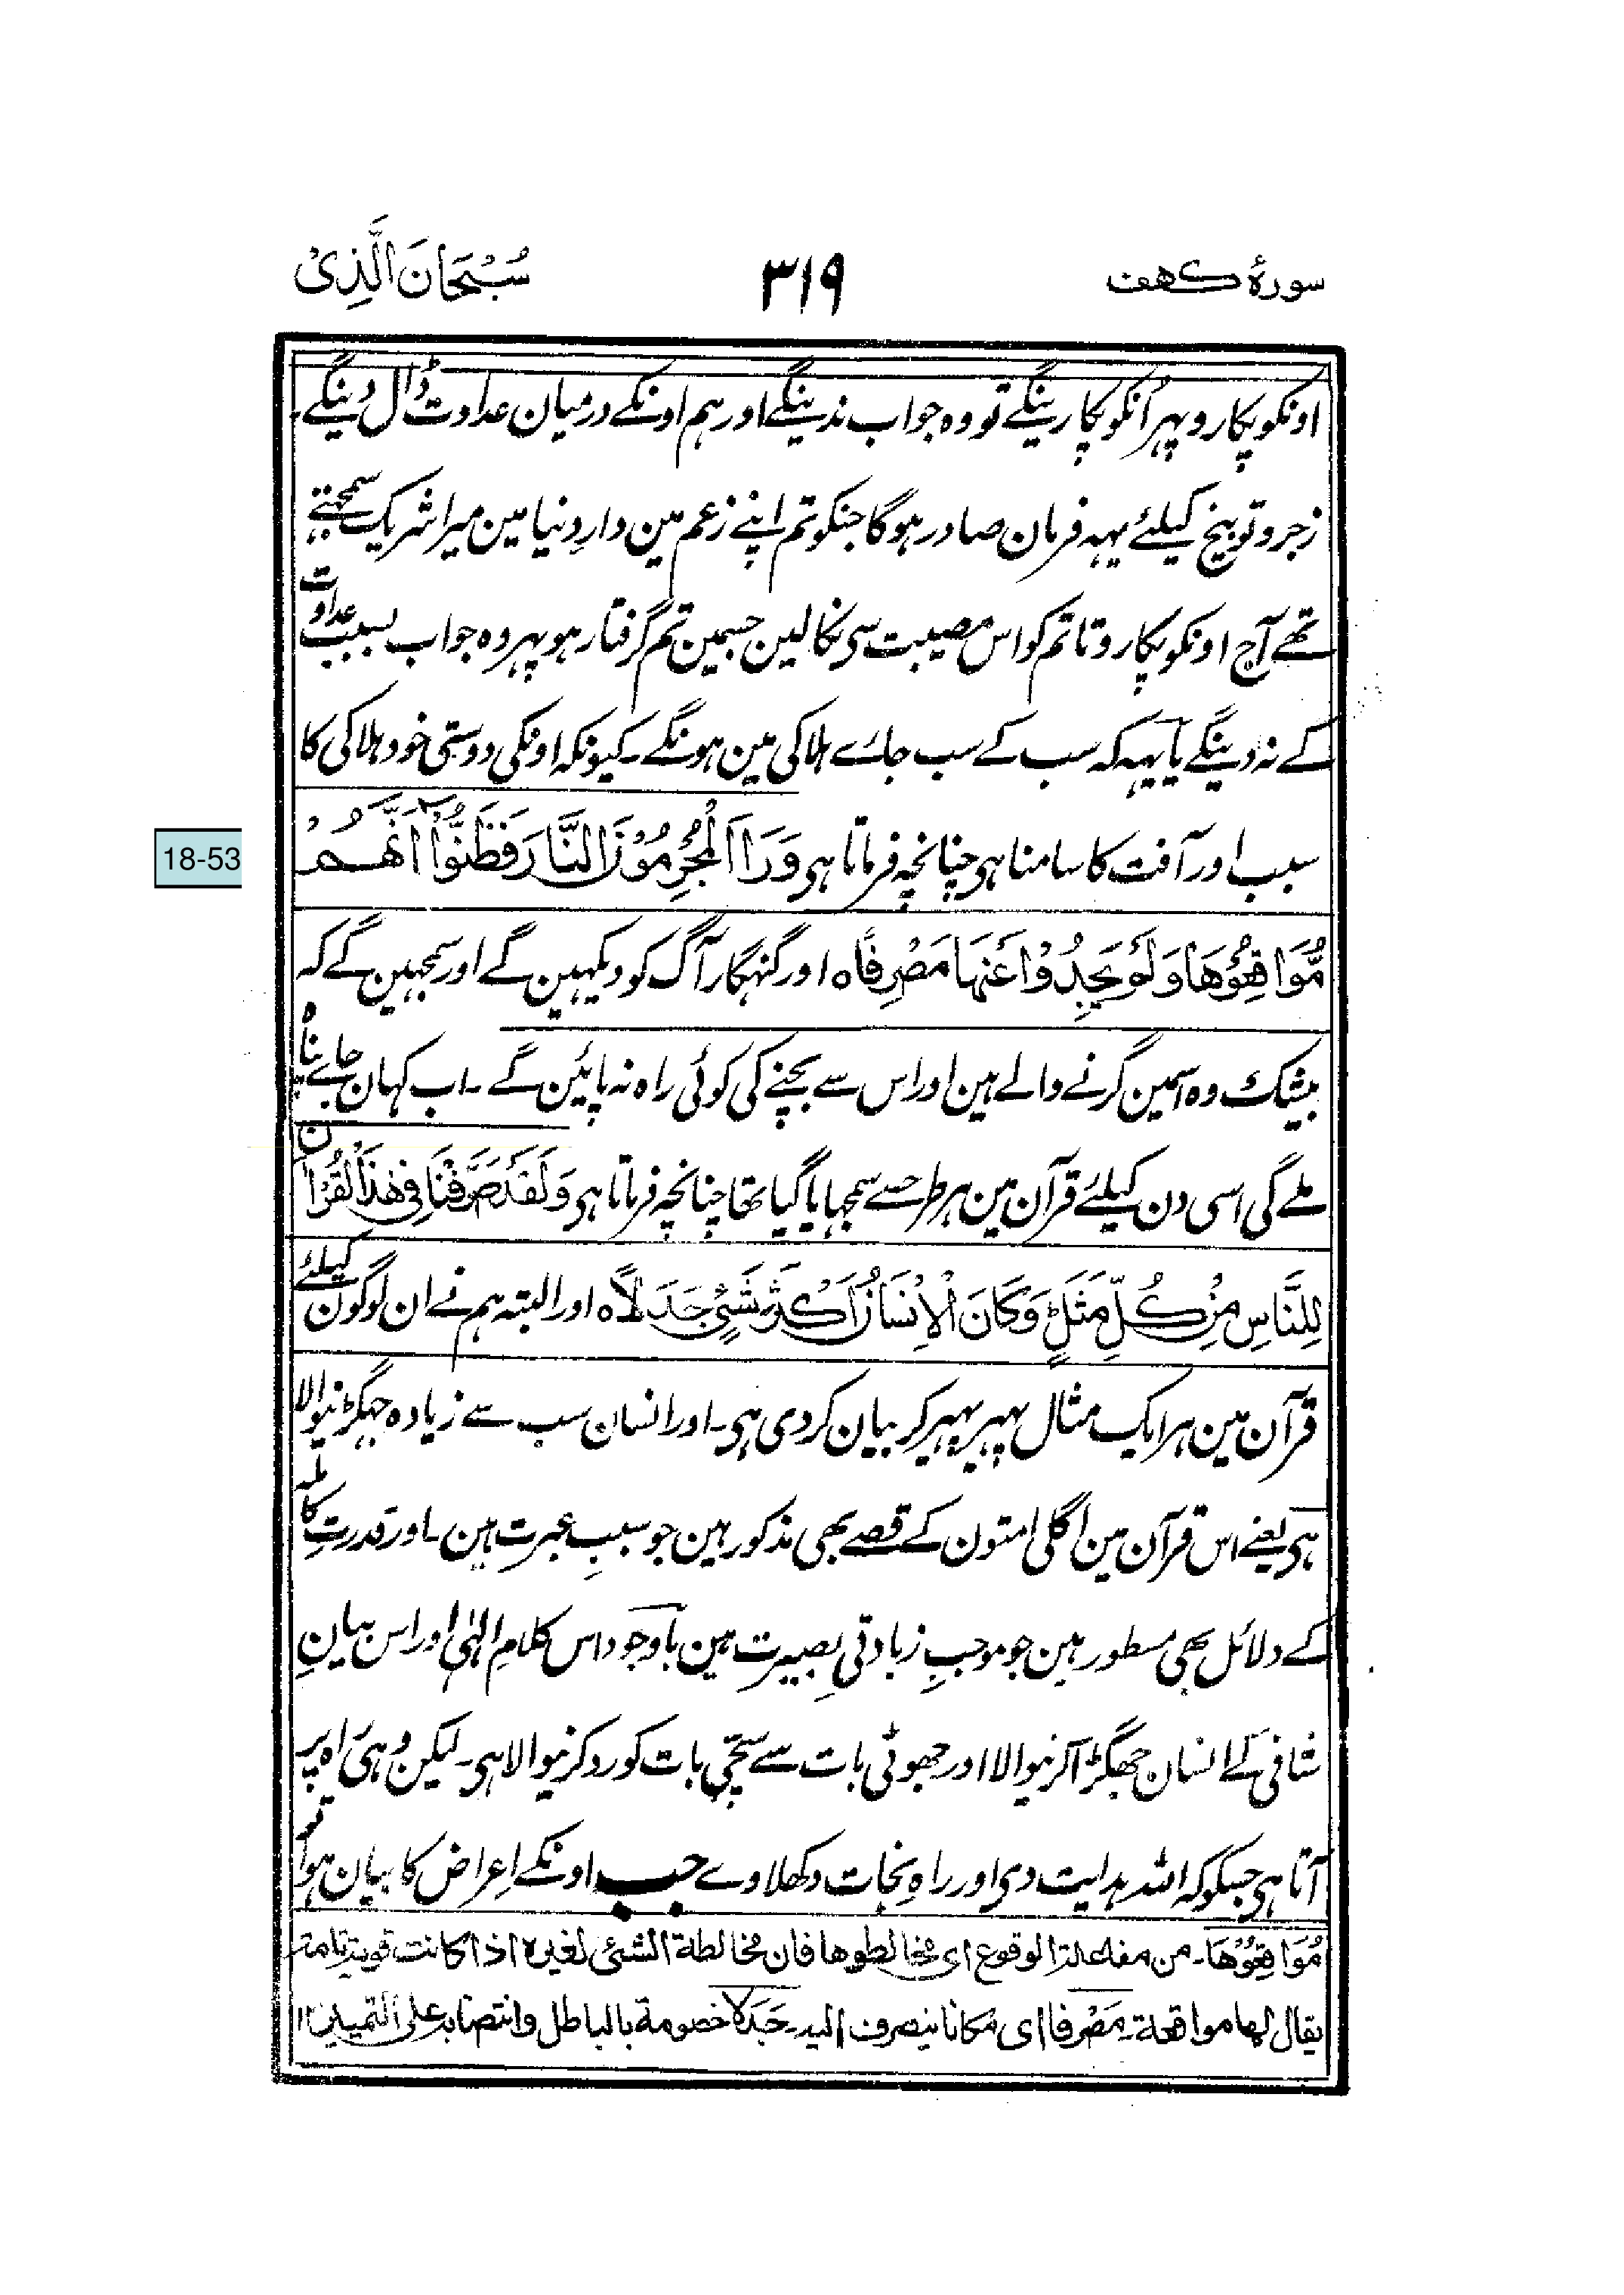 سورۂ کہف
۳۱۹
سُبْحَانَ الَّذِیْ
اونکو پکارو پہر اُنکو پکارینگے تو وہ جواب ندینگے اور ہم اونکے درمیان عداوت ڈال دینگے۔
زجر و توبیخ کیلئے یہہ فرمان صادر ہوگا جنکو تم اپنے زعم مین دارِ دنیا مین میرا شریک سمجھتے
تھے آج اونکو پکارو تا تم کو اس مصیبت سی نکالین جسمین تم گرفتار ہو پہر وہ جواب بسبب عداوت
کے نہ دینگے یا یہہ کہ سب کے سب جائے ہلاکی مین ہونگے۔ کیونکہ اونکی دوستی خود ہلاکی کا
18-53
سبب اور آفت کا سامنا ہی چنانچہ فرماتا ہی وَرَاَ الْمُجْرِمُوْنَ النَّارَ فَظَنُّوْٓا اَنَّهُمْ
مُّوَاقِعُوْهَا وَلَمْ يَجِدُوْا عَنْهَا مَصْرِفًا ہ اور گنہگار آگ کو دیکہین گے اور سمجہین گے کہ
بیشک وہ اسمین گرنے والے ہین اور اس سے بچنے کی کوئی راہ نہ پائین گے ۔ اب کہان جائے پناہ
ملے گی اسی دن کیلئے قرآن مین ہر طرحسے سمجہایا گیا تھا چنانچہ فرماتا ہی وَلَقَدْ صَرَّفْنَا فِیْ هٰذَا الْقُرْاٰنِ
لِلنَّاسِ مِنْ كُلِّ مَثَلٍ وَكَانَ الْاِنْسَانُ اَكْثَرَ شَیْءٍ جَدَلًا ہ اور البتہ ہم نے ان لوگون کیلئے
قرآن مین ہر ایک مثال پہیر پہیر کر بیان کر دی ہی۔ اور انسان سب سے زیادہ جہگڑنیوالا
ہی یعنے اس قرآن مین اگلی امتون کے قصے بھی مذکور ہین جو سببِ عبرت ہین ۔ اور قدرتِ کاملہ
کے دلائل بھی مسطور ہین جو موجبِ زیادتیِ بصیرت ہین باوجود اس کلامِ الٰہی اور اس بیانِ
شافی کے انسان جھگڑا کرنیوالا اور جھوٹی بات سے سچّی بات کو رد کرنیوالا ہی۔ لیکن وہی راہ پر
آتا ہی جسکو کہ اللہ ہدایت دی اور راہِ نجات دکھلاوے جب اونکے اِعراض کا بیان ہوا تو
مُوَاقِعُوْهَا۔ من مفاعلة الوقوع ای مخالطوها فان مخالطة الشئی لغیرہ اذا کانت قویة تامة
یقال لها مواقعة۔ مَصْرِفًا ای مکانا ینصرف الیہ۔ جَدَلًا خصومة بالباطل وانتصابہ علی التمییز ۱۱